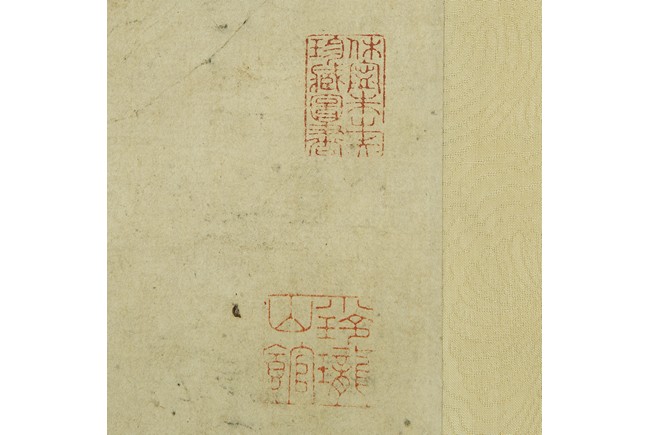 休寧朱之赤
珍藏圖書
小玲瓏
山館